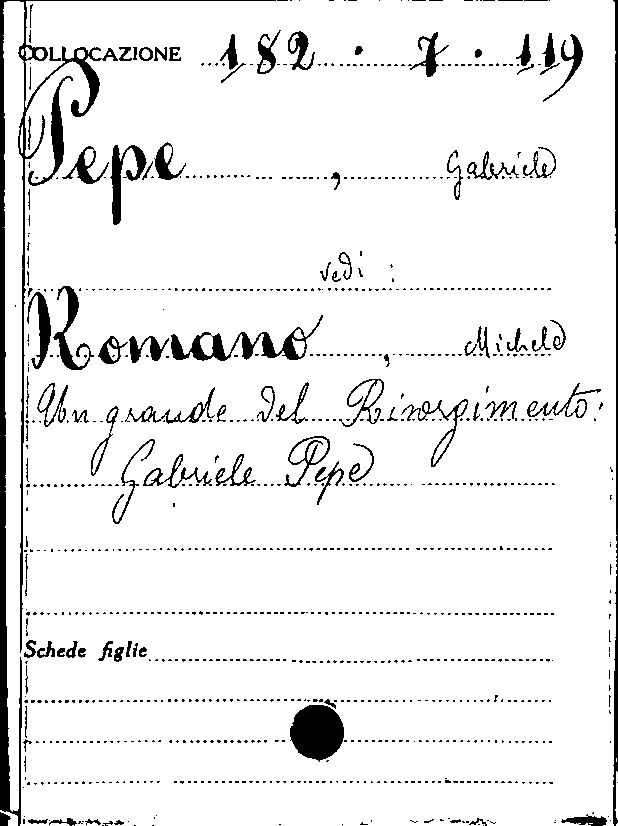 COLLOCAZIONE 182 · 7 · 119
Pepe, Gabriele
vedi:
Romano, Michele
Un grande del Risorgimento:
Gabriele Pepe
Schede figlie